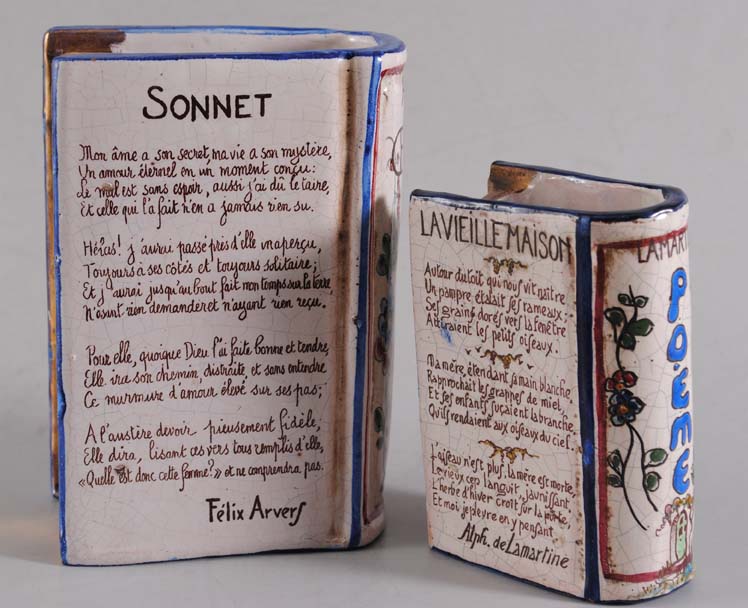 SONNET
Mon âme a son secret, ma vie a son mystère,
Un amour éternel en un moment conçu:
Le mal est sans espoir, aussi j'ai dû le taire,
Et celle qui l'a fait n'en a jamais rien su.
Hélas! j'aurai passé près d'elle inaperçu,
Toujours à ses côtés et toujours solitaire;
Et j'aurai jusqu'au bout fait mon temps sur la terre,
N'osant rien demander et n'ayant rien reçu.
Pour elle, quoique Dieu l'ai faite bonne et tendre,
Elle ira son chemin, distraite et sans entendre
Ce murmure d'amour élevé sur ses pas;
A l'austère devoir pieusement fidèle,
Elle dira, lisant ces vers tous remplis d'elle,
«Quelle est donc cette femme?» et ne comprendra pas.
Félix Arvers
LA VIEILLE MAISON
Autour du toit qui nous vit naître
Un pampre étalait ses rameaux;
Ses grains dorés vers la fenêtre
Attiraient les petits oiseaux.
Ma mère, étendant sa main blanche,
Rapprochait les grappes de miel,
Et ses enfants suçaient la branche
Qu'ils rendaient aux oiseaux du ciel.
L'oiseau n'est plus, la mère est morte,
Le vieux cep languit, jaunissant,
L'herbe d'hiver croît sur la porte,
Et moi je pleure en y pensant
Alph. de Lamartine
LAMARTI
POÈME